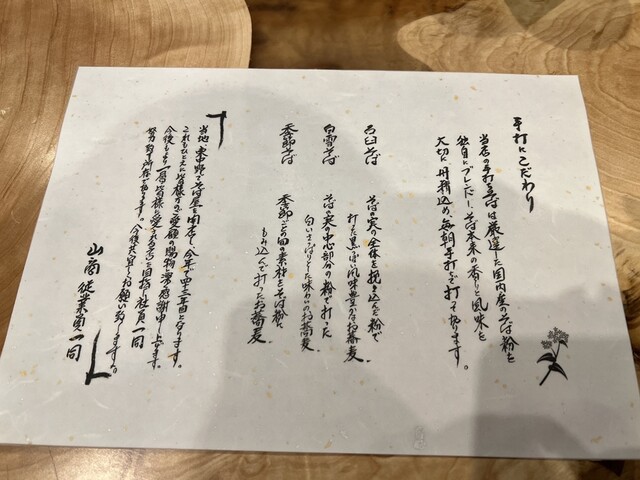 手打にこだわり
当店の手打そばは厳選した国内産のそば粉を
独自にブレンドし、そば本来の香りと風味を
大切に丹精込め、毎朝手打で打っております。
石臼そば
そばの実の全体を挽き込んだ粉で
打った黒っぽい風味豊かなお蕎麦
白雪そば
そばの実の中心部分の粉で打った
白いさっぱりとした味わいのお蕎麦
季節そば
季節ごとの旬の素材をそば粉に
もみ込んで打ったお蕎麦
当地、東中野でそば屋を開店し、今年で四十三年目となります。
これもひとえに皆様方のご愛顧の賜物と感謝申し上げます。
今後もより一層、皆様に愛されるそばを目指し社員一同
努力する所存であります。今後共宜しくお願い致します。
山商 従業員一同